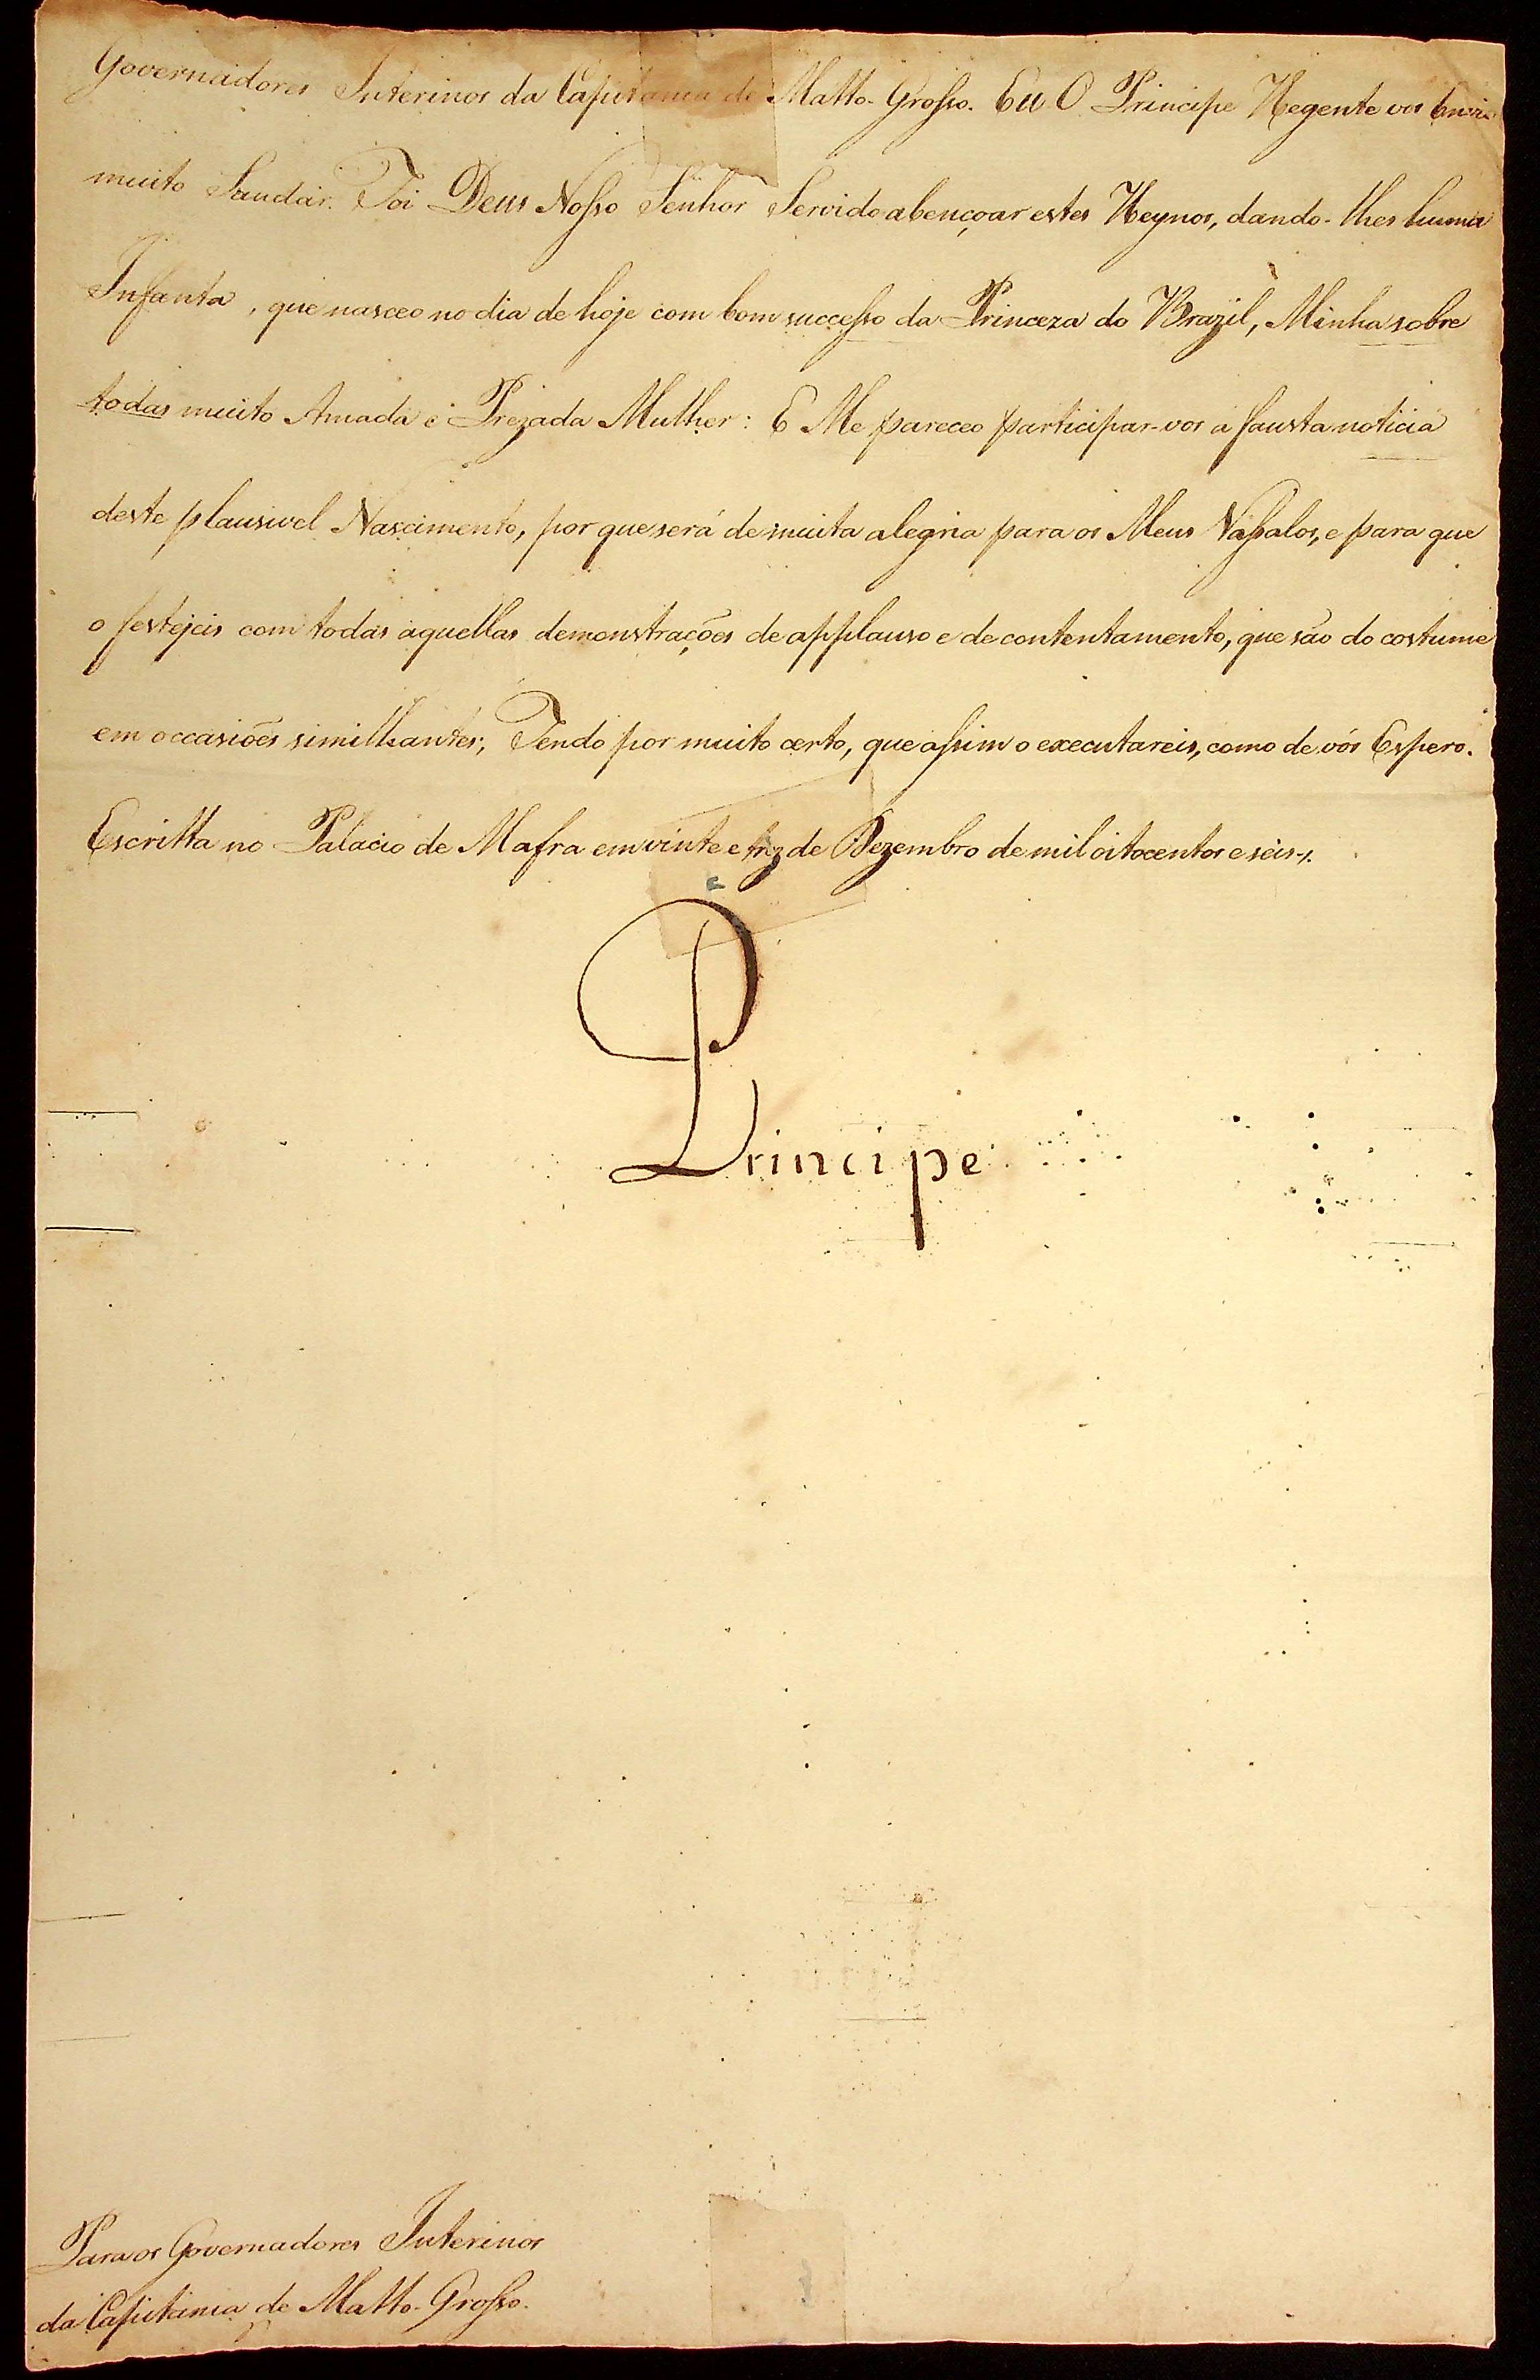 Governadores Interinos da Capitania de Matto-Grosso. Eu O Principe Regente vos Envio
muito Saudar. Foi Deus Nosso Senhor Servido abençoar estes Reynos, dando-lhes huma
Infanta, que nasceo no dia de hoje com bom successo da Princeza do Brazil, Minha sobre
todas muito Amada e Prezada Mulher: E Me pareceo participar-vos a fausta noticia
deste plausivel Nascimento, por que será de muita alegria para os Meus Vassalos, e para que
o festejeis com todas aquellas demonstrações de applauso e de contentamento, que são do costume
em occasiões similhantes; Tendo por muito certo, que assim o executareis, como de vós Espero.
Escritta no Palacio de Mafra em vinte e trez de Dezembro de mil oitocentos e seis.
Principe
Para os Governadores Interinos
da Capitania de Matto-Grosso.